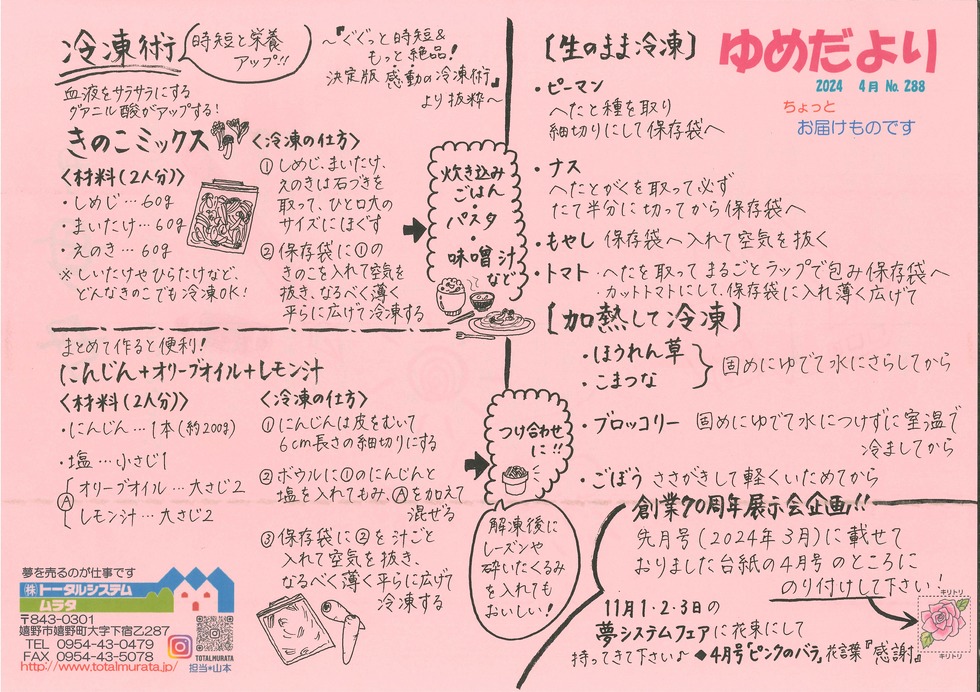 冷凍術
時短と栄養
アップ!!
～『ぐぐっと時短&
もっと絶品!
決定版 感動の冷凍術』
より抜粋～
血液をサラサラにする
グアニル酸がアップする!
きのこミックス
〈材料(2人分)〉
・しめじ…60g
・まいたけ…60g
・えのき…60g
※しいたけやひらたけなど、
どんなきのこでも冷凍OK!
〈冷凍の仕方〉
①しめじ、まいたけ、
えのきは石づきを
取って、ひと口大の
サイズにほぐす
②保存袋に①の
きのこを入れて空気を
抜き、なるべく薄く
平らに広げて冷凍する
炊き込み
ごはん
・
パスタ
・
味噌汁
など
まとめて作ると便利!
にんじん+オリーブオイル+レモン汁
〈材料(2人分)〉
・にんじん…1本(約200g)
・塩…小さじ1
Ⓐ
オリーブオイル…大さじ2
レモン汁…大さじ2
〈冷凍の仕方〉
①にんじんは皮をむいて
6cm長さの細切りにする
②ボウルに①のにんじんと
塩を入れてもみ、Ⓐを加えて
混ぜる
③保存袋に②を汁ごと
入れて空気を抜き、
なるべく薄く平らに広げて
冷凍する
つけ合わせ
に!!
解凍後に
レーズンや
砕いたくるみ
を入れても
おいしい!
夢を売るのが仕事です
㈱トータルシステム
ムラタ
〒843-0301
嬉野市嬉野町大字下宿乙287
TEL 0954-43-0479
FAX 0954-43-5078
http://www.totalmurata.jp/
TOTALMURATA
担当*山本
ゆめだより
2024 4月 No. 288
ちょっと
お届けものです
[生のまま冷凍]
・ピーマン
へたと種を取り
細切りにして保存袋へ
・ナス
へたとがくを取って必ず
たて半分に切ってから保存袋へ
・もやし 保存袋へ入れて空気を抜く
・トマト・へたを取ってまるごとラップで包み保存袋へ
・カットトマトにして、保存袋に入れ薄く広げて
[加熱して冷凍]
・ほうれん草
・こまつな
固めにゆでて水にさらしてから
・ブロッコリー 固めにゆでて水につけずに室温で
冷ましてから
・ごぼう ささがきして軽くいためてから
創業70周年展示会企画!!
先月号(2024年3月)に載せて
おりました台紙の4月号のところに
のり付けして下さい!
11月1・2・3日の
夢システムフェアに花束にして
持ってきて下さい♪ ◆4月号「ピンクのバラ」花言葉『感謝』
キリトリ
キリトリ